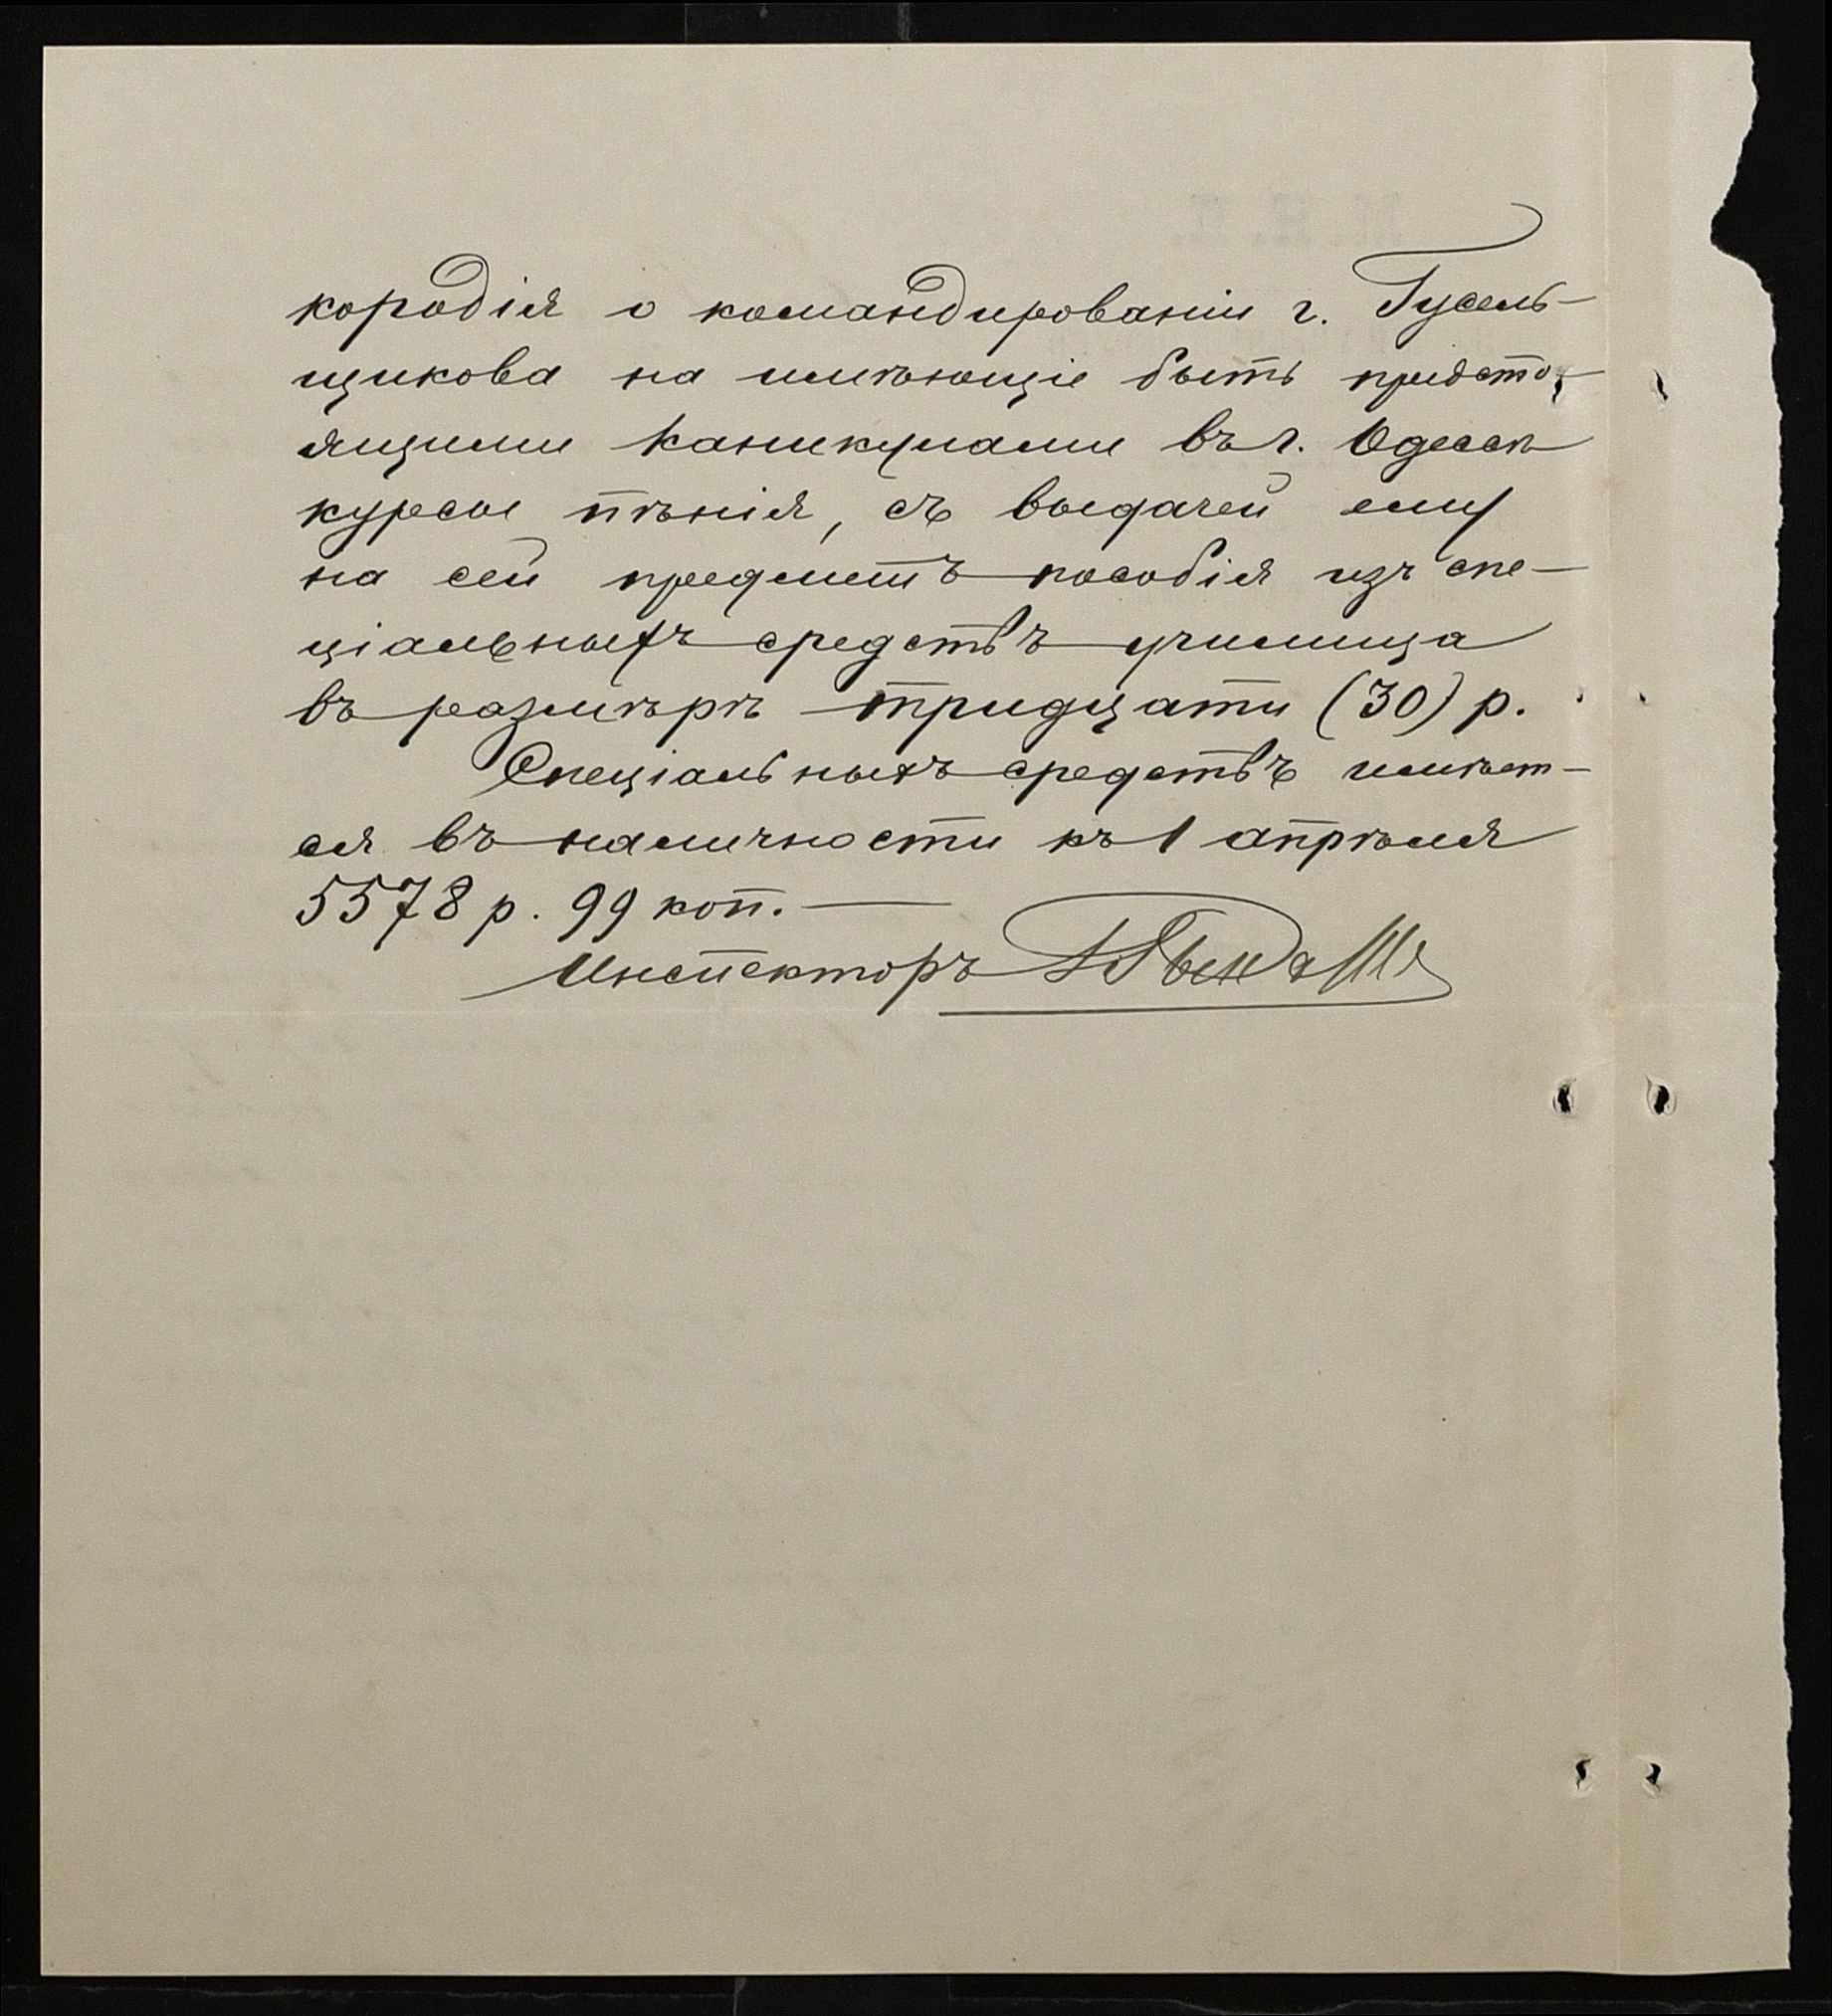 кородія о командированіи г. Гусель-
щикова на имѣющіе быть предсто-
ящими каникулами въ г. Одессѣ
курсы пѣнія, съ выдачей ему
на сей предметъ пособія изъ спе-
ціальныхъ средствъ училища
въ размѣрѣ тридцати (30) р.
Спеціальныхъ средствъ имѣет-
ся въ наличности къ 1 апрѣля
5578 р. 99 коп. —
Инспекторъ